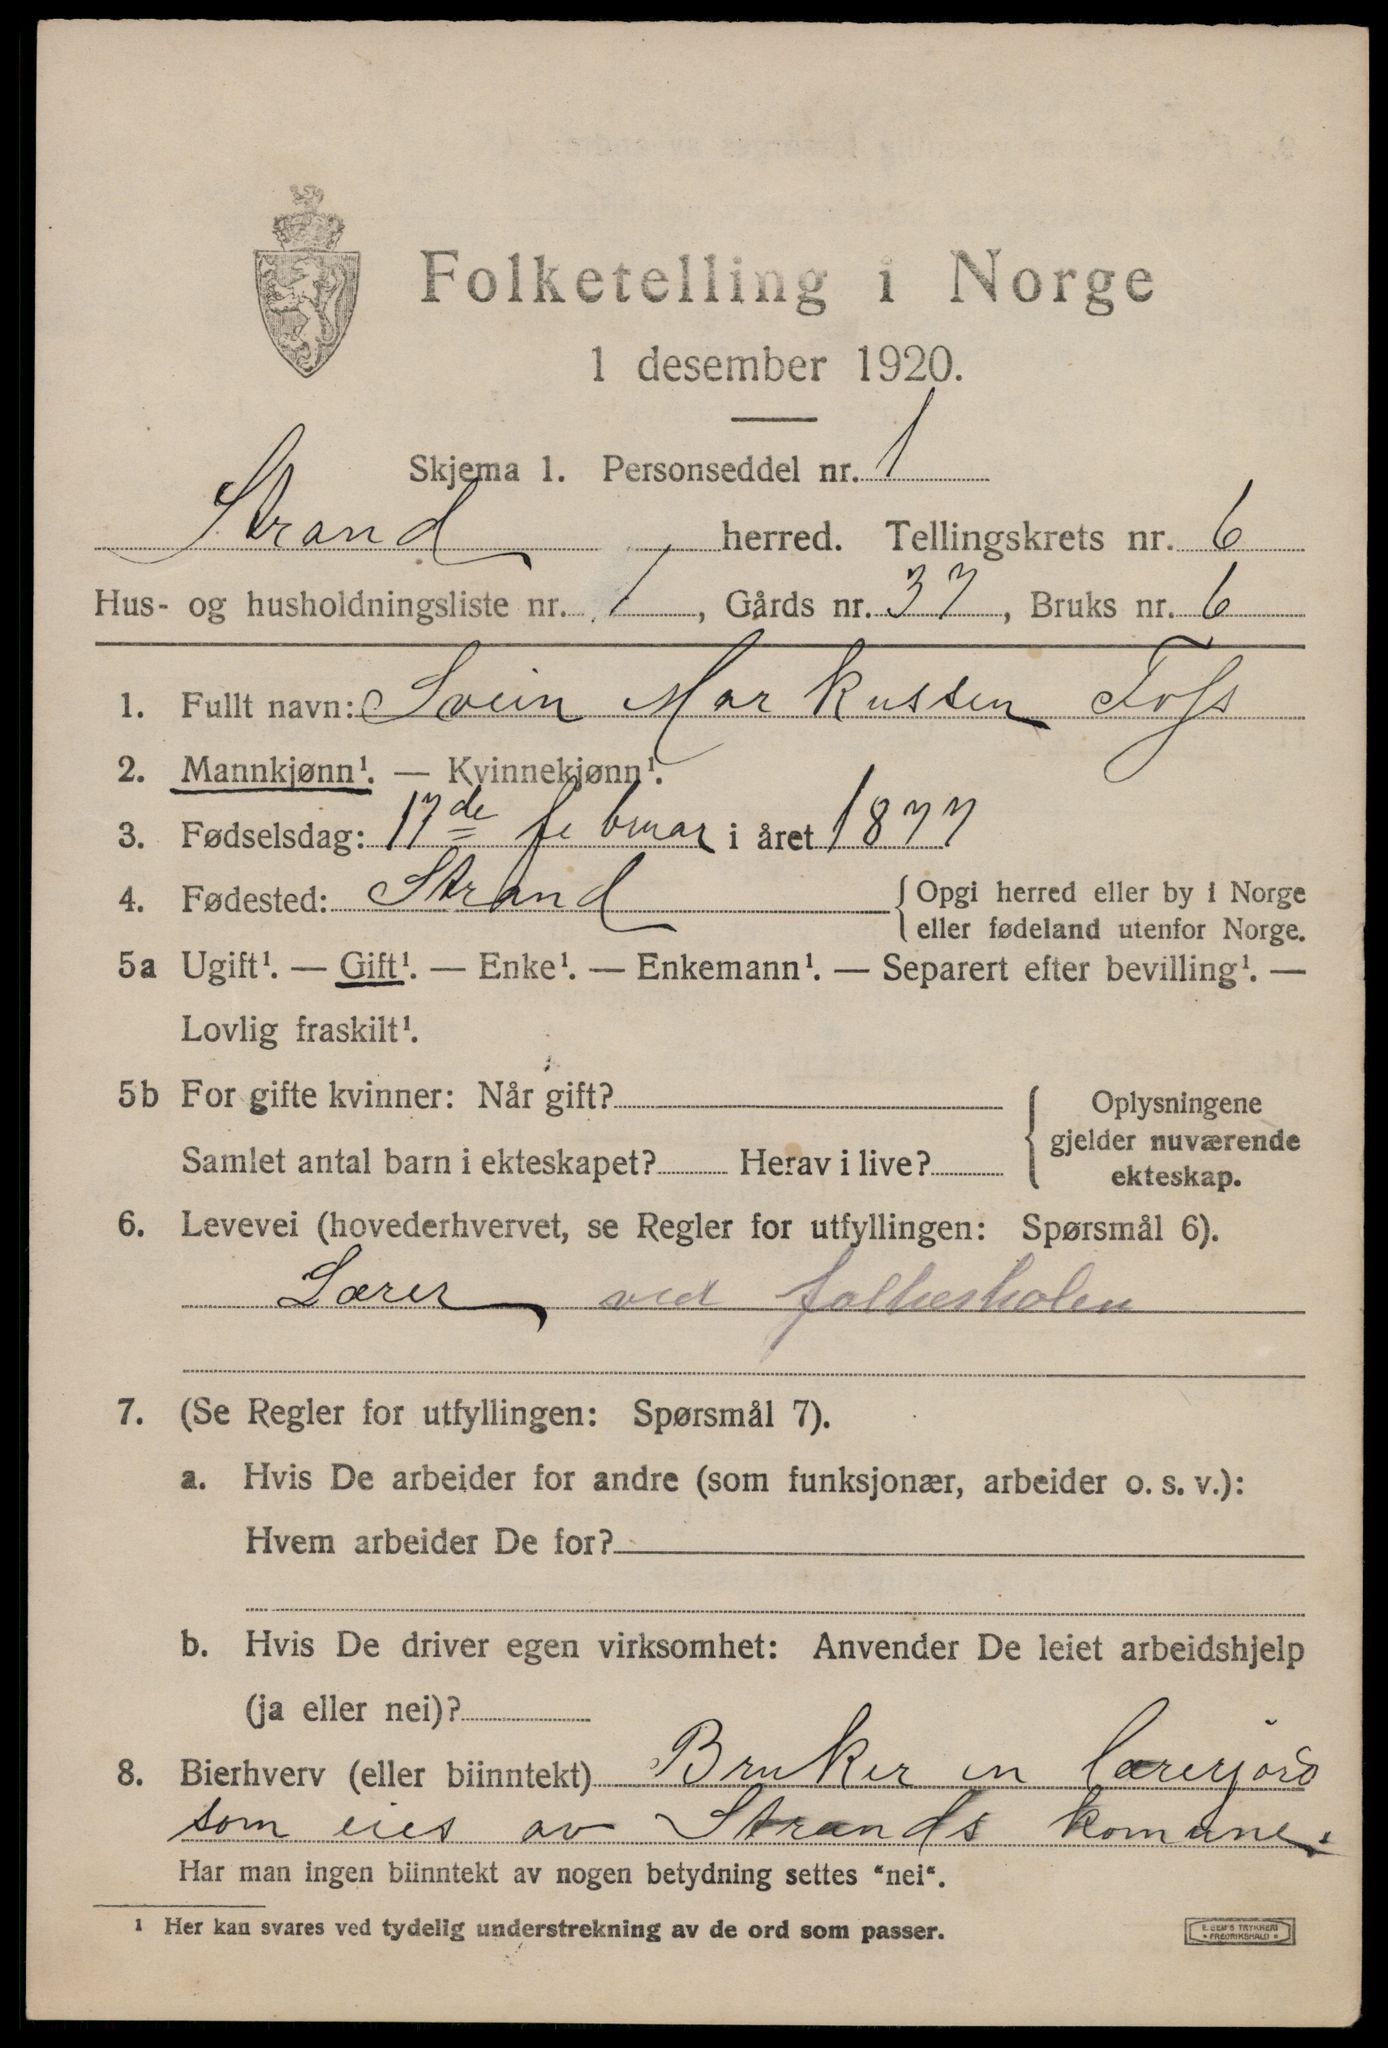 Folketelling i Norge
1 desember 1920.
Skjema 1. Personseddel nr. 1
Strand herred. Tellingskrets nr. 6
Hus- og husholdningsliste nr. 1, Gårds nr. 37, Bruks nr. 6
1. Fullt navn: Svein Markussen Foss
2. Mannkjønn¹. — Kvinnekjønn¹.
3. Fødselsdag: 17de februar i året 1877
4. Fødested: Strand { Opgi herred eller by i Norge
eller fødeland utenfor Norge.
5a Ugift¹. — Gift¹. — Enke¹. — Enkemann¹. — Separert efter bevilling¹. —
Lovlig fraskilt¹.
5b For gifte kvinner: Når gift? { Oplysningene
gjelder nuværende
Samlet antal barn i ekteskapet? Herav i live?
ekteskap.
6. Levevei (hovederhvervet, se Regler for utfyllingen: Spørsmål 6).
Lærer ved folkeskolen
7. (Se Regler for utfyllingen: Spørsmål 7).
a. Hvis De arbeider for andre (som funksjonær, arbeider o. s. v.):
Hvem arbeider De for?
b. Hvis De driver egen virksomhet: Anvender De leiet arbeidshjelp
(ja eller nei)?
8. Bierhverv (eller biinntekt) Bruker en lærerjord
som eies av Strands komune.
Har man ingen biinntekt av nogen betydning settes "nei".
¹ Her kan svares ved tydelig understrekning av de ord som passer.
E. SEM'S TRYKKERI
* FREDRIKSHALD *